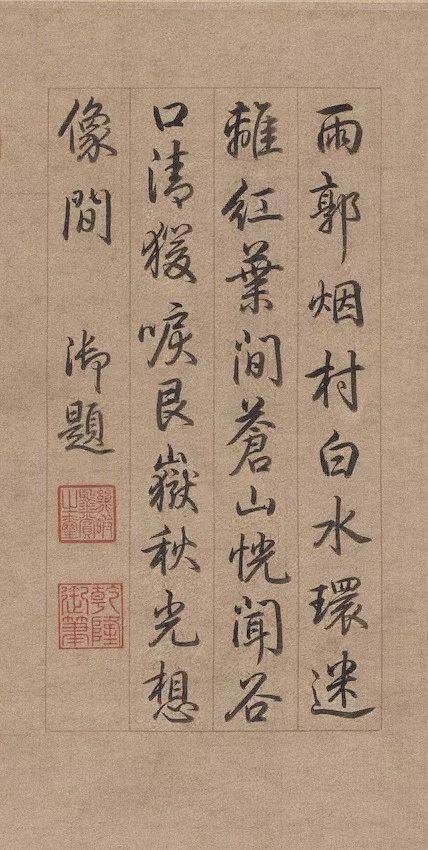 雨郭烟村白水環迷
離紅葉間蒼山恍聞谷
口清猨唳艮嶽秋光想
像間 御題
幾暇鑒賞之璽
乾隆御筆